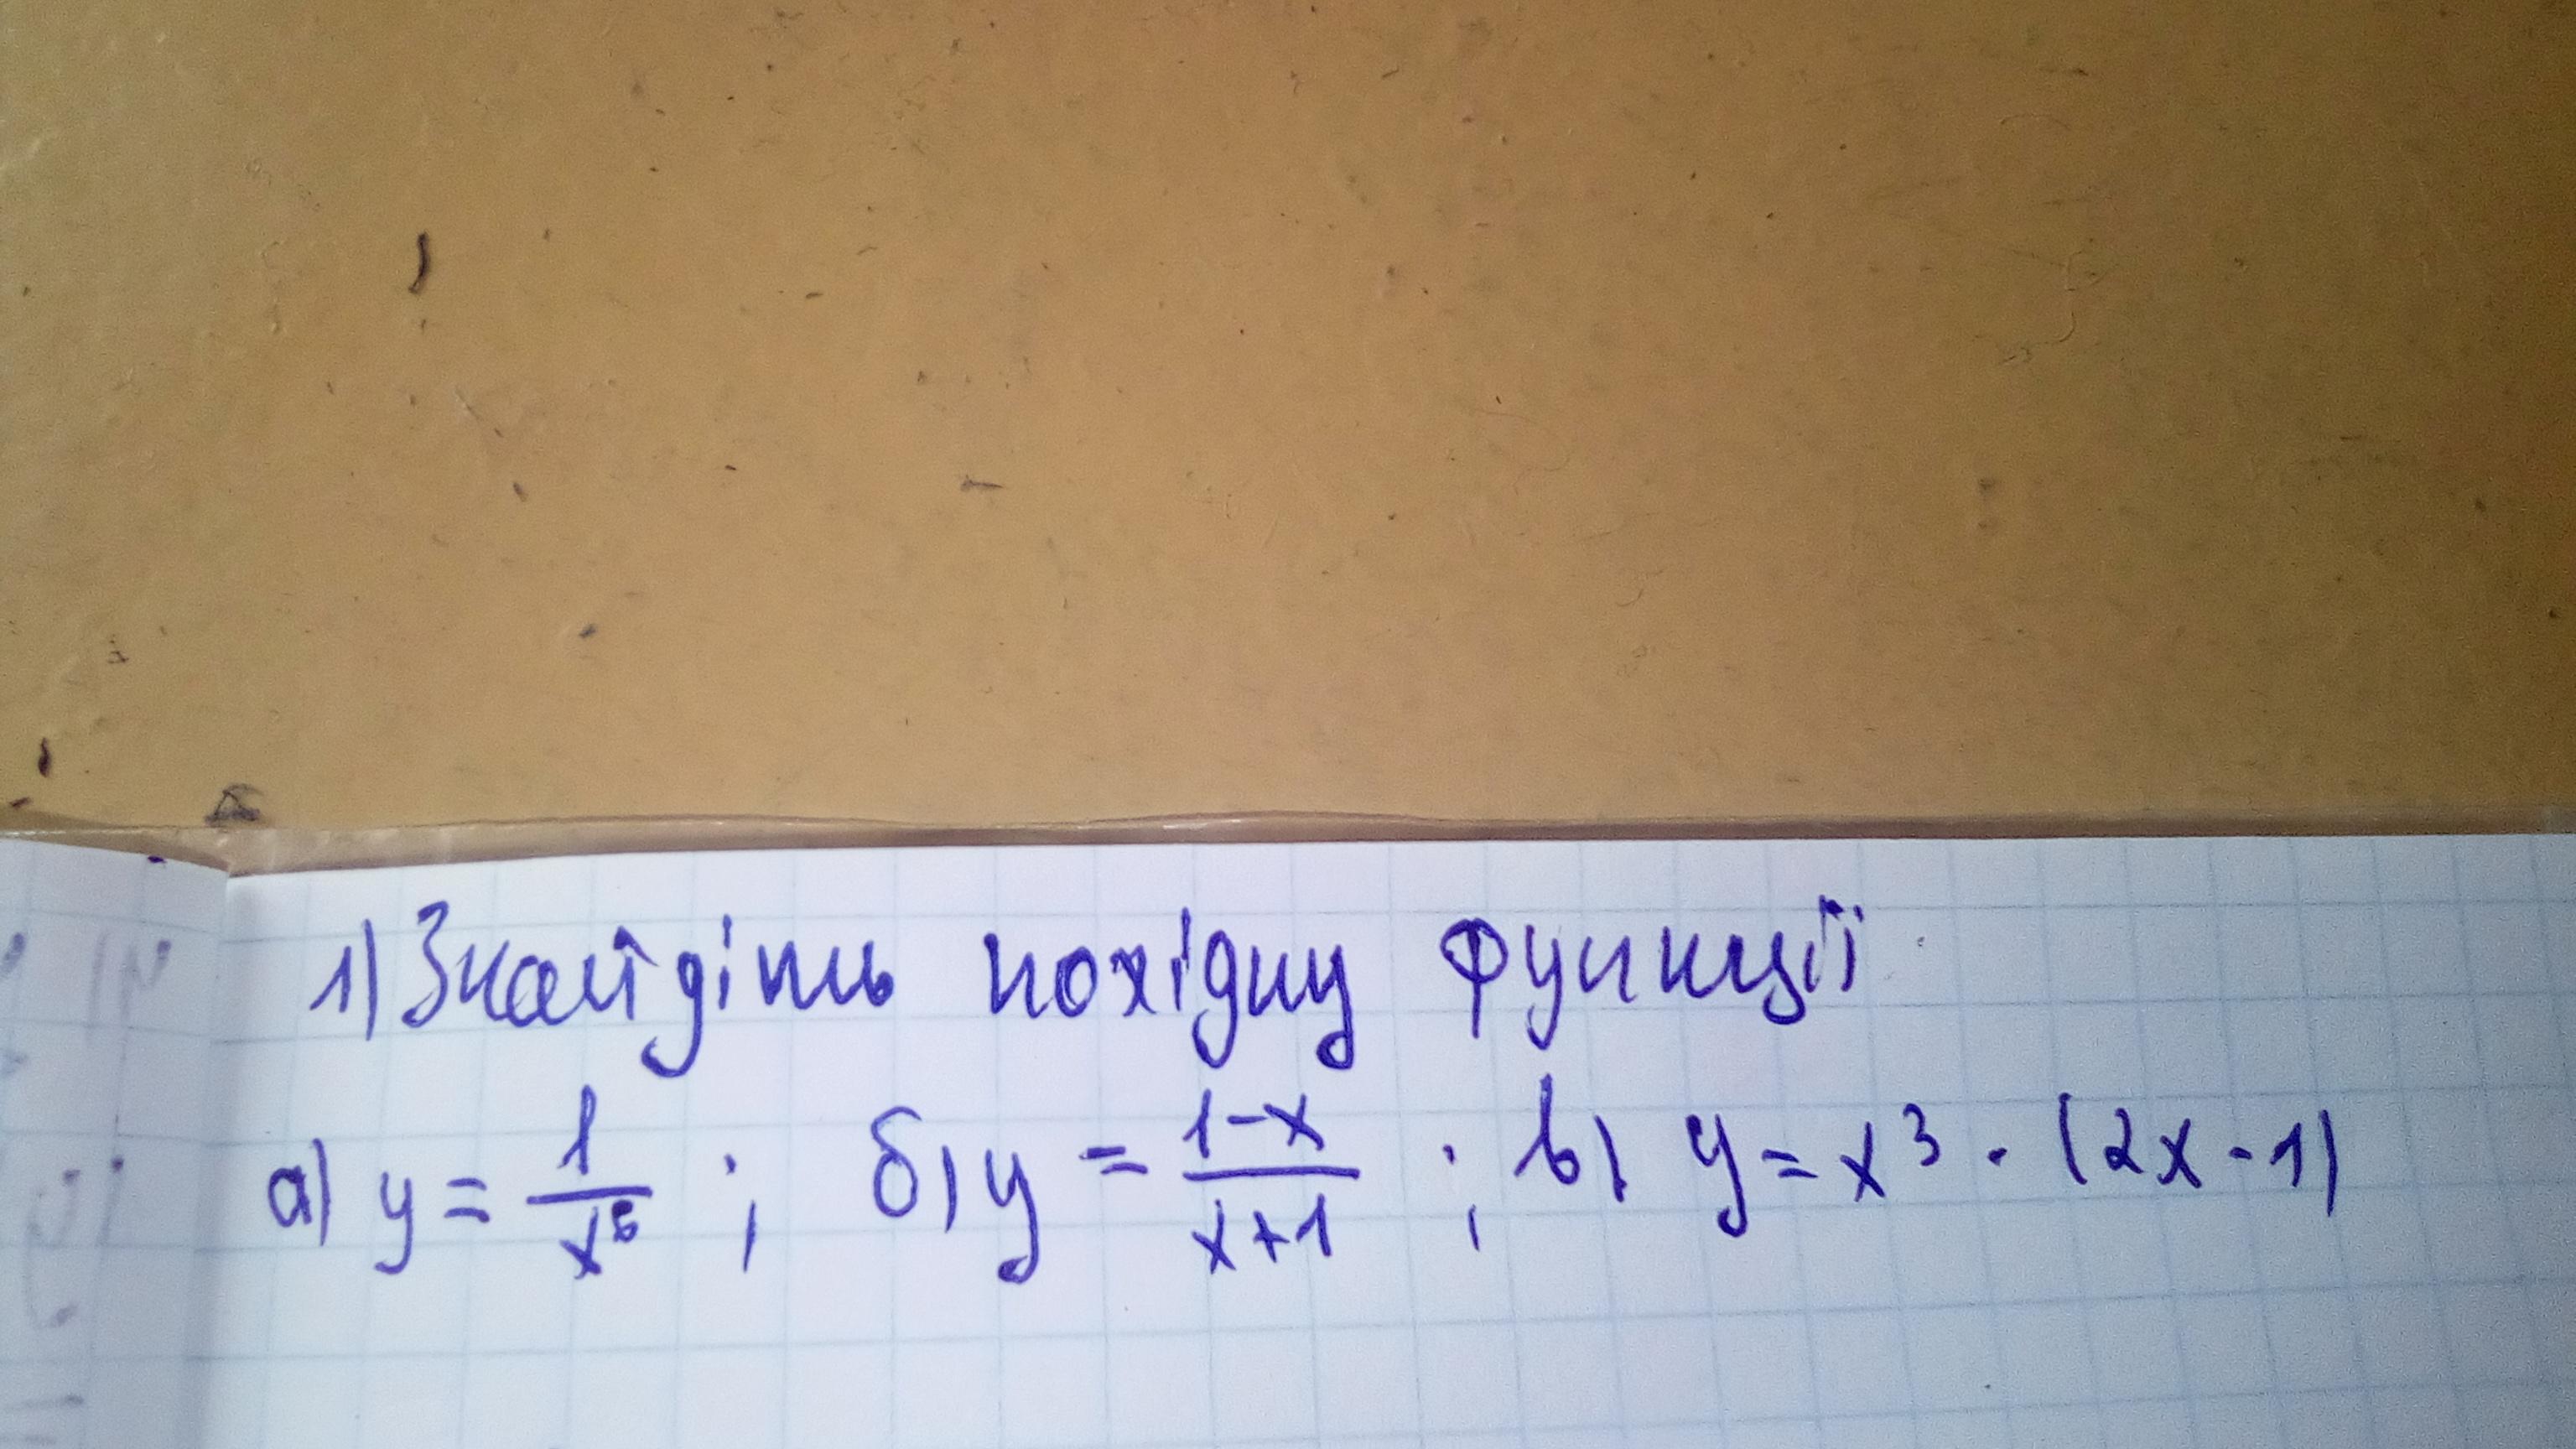 1) Знайдіть похідну функції
а) y = 1/x⁶ ; б) y = 1-x/x+1 ; в) y = x³ · (2x - 1)